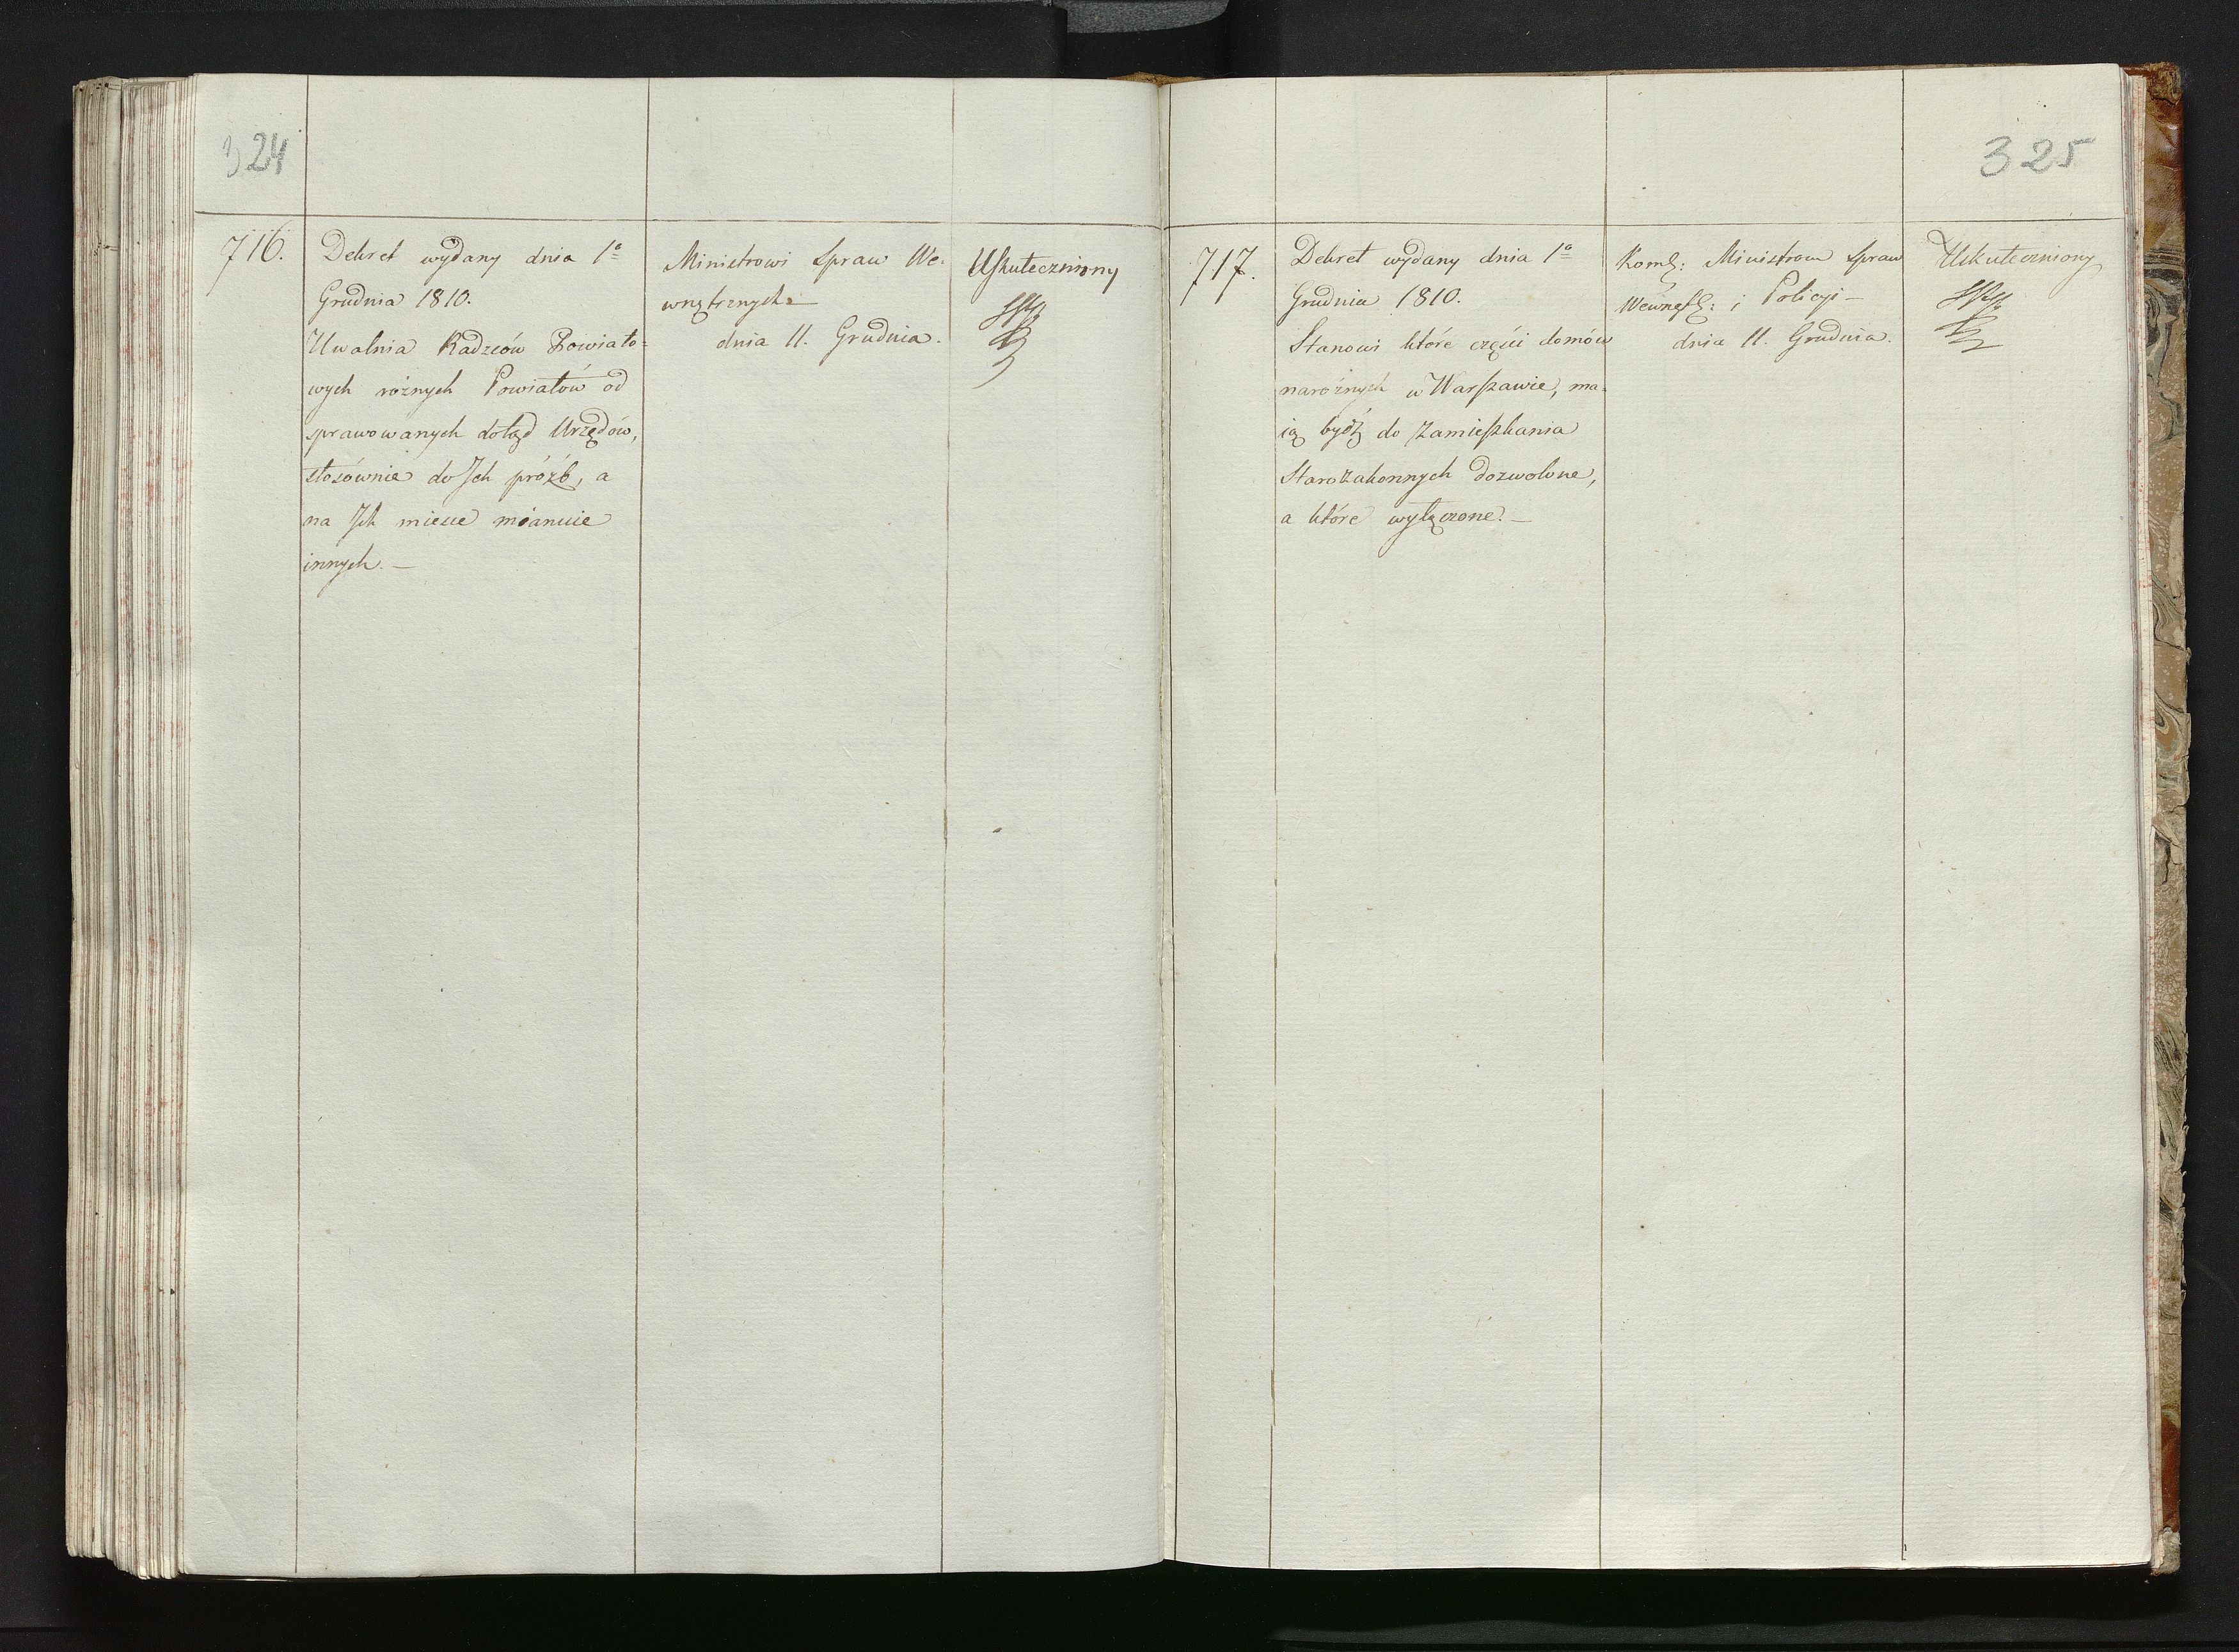 324
716.
Dekret wydany dnia 1º
Grudnia 1810.
Uwalnia Radzców Powiato=
wych rożnych Powiatów od
sprawowanych dotąd Urzędów,
stosównie do Jch próźb, a
na Jch miesce mianuie
innych. —
Ministrowi Spraw We-
wnętrznych —
dnia 11. Grudnia.
Uskuteczniony
325
717.
Dekret wydany dnia 1º
Grudnia 1810.
Stanowi które części domów
narożnych w Warszawie, ma-
ią bydź do zamieszkania
Starozakonnych dozwolone,
a które wyłączone. —
Ministrom Spraw
i Policyi —
dnia 11. Grudnia.
Uskuteczniony